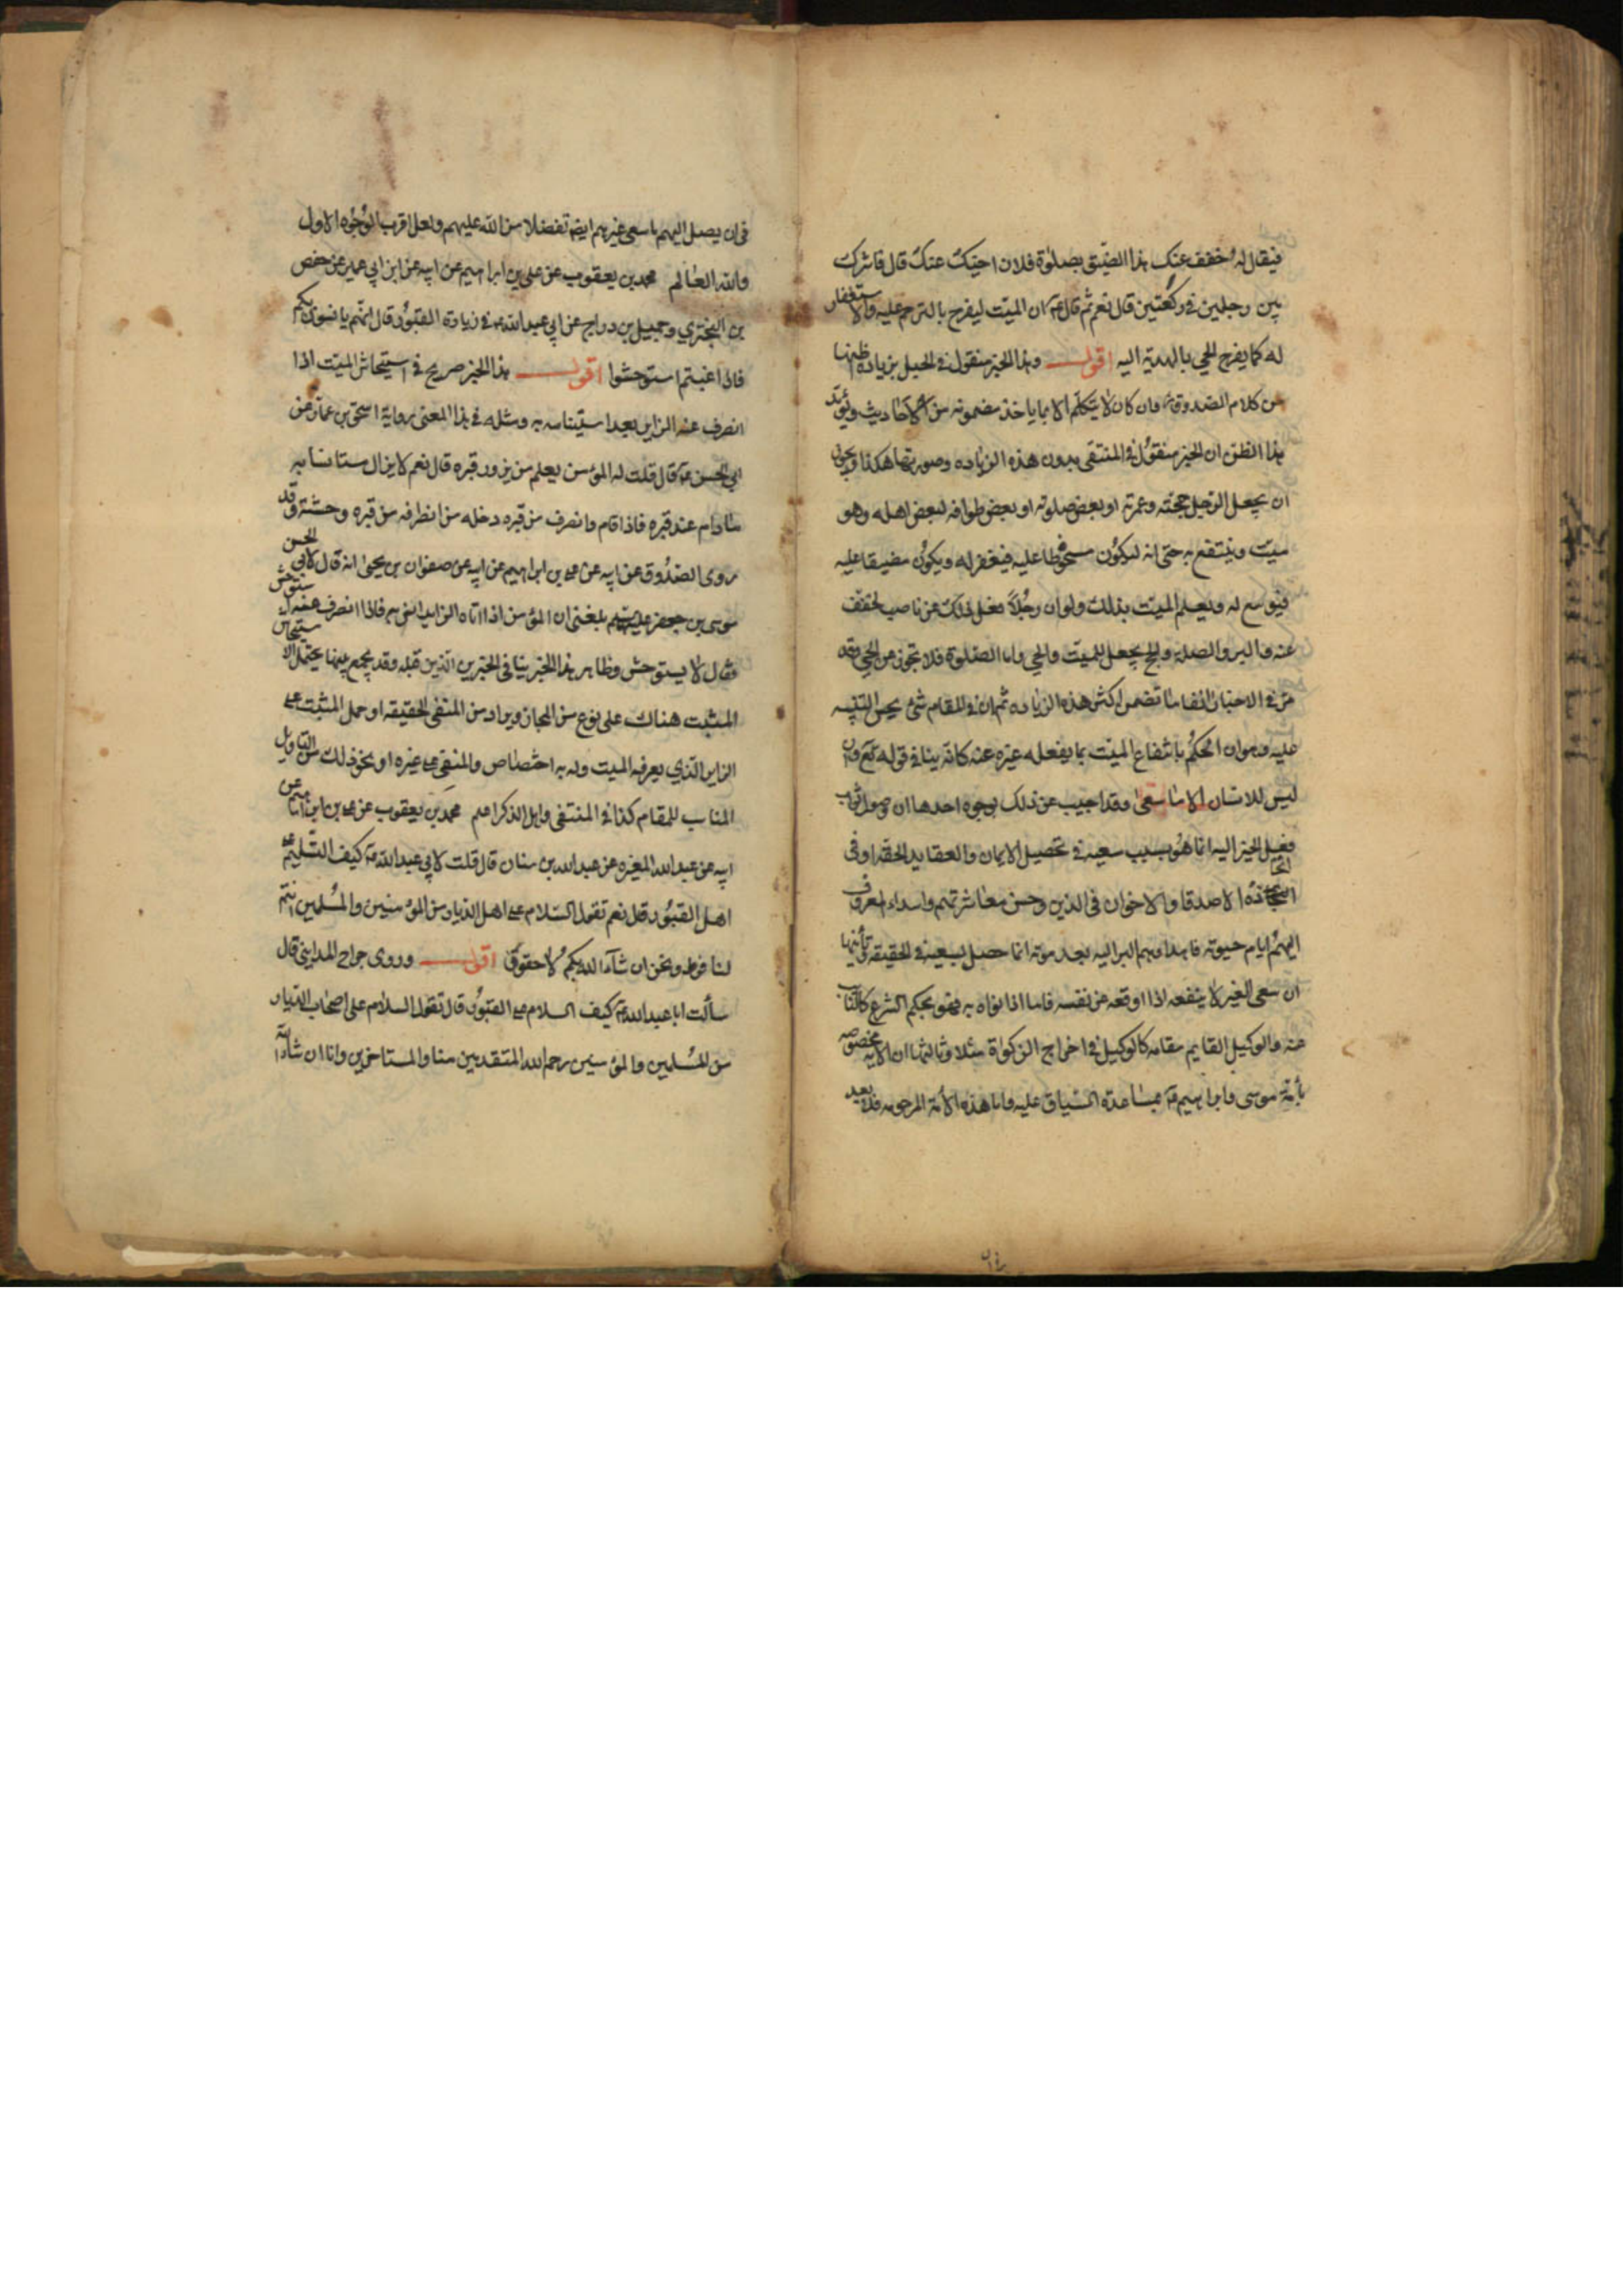 فيقال له خفف عنك هذا الضيق بصلوة فلان اخيك عنك قال فاشرك
بين رجلين في ركعتين قال نعم ثم قال ع ان الميت ليفرح بالترحم عليه والاستغفار
له كما يفرح الحي بالهدية اليه اقول وهذا الخبر منقول في الحبل بزيادة ظنها
من كلام الصدوق وان كان لا يتكلم الا بما ياخذ مضمونه من الاحاديث ويؤيد
هذا الظن ان الخبر منقول في المنتقى بدون هذه الزياده وصورتها هكذا ويجوز
ان يجعل الرجل حجته وعمرته او بعض صلوته او بعض طوافه لبعض اهله وهو
ميت وينتفع به حتى انه ليكون مسخوطا عليه فيغفر له ويكون مضيقا عليه
فيوسع له ويعلم الميت بذلك ولو ان رجلا فعل ذلك عن ناصب لخفف
عنه والبر والصلة والحج يجعل للميت والحي واما الصلوة فلا تجوز عن الحي وقد
مر في الاخبار انفا ما تضمن اكثر هذه الزياده ثم ان في المقام شئ يحسن التنبيه
عليه وهو ان الحكم بانتفاع الميت بما يفعله غيره عنه كانه ينافي قوله تع وان
ليس للانسان الا ما سعى وقد اجيب عن ذلك بوجوه احدها ان وصول ثواب
فعل الخير اليه انما هو بسبب سعيه في تحصيل الايمان والعقايد الحقه او في
اتخاذه الاصدقا والاخوان في الدين وحسن معاشرتهم واسداء المعروف
اليهم ايام حيوته فاهداوهم البر اليه بعد موته انما حصل بسعيه في الحقيقه وثانيها
ان سعى الغير لا ينفعه اذا اوقعه عن نفسه فاما اذا نواه به فهو بحكم الشرع كالنائب
عنه والوكيل القايم مقامه كالوكيل في اخراج الزكواة مثلا وثالثها ان الايه مخصوصه
بأمة موسى وابراهيم ع بمساعدة السياق عليه واما هذه الامة المرحومه فلا بعيد
في ان يصل اليهم ما سعى غيرهم ايضا تفضلا من الله عليهم ولعل اقرب الوجوه الاول
والله العالم محمد بن يعقوب عن علي بن ابراهيم عن ابيه عن ابن ابي عمير عن حفص
بن البختري وجميل بن دراج عن ابي عبد الله ع في زيارة القبور قال انهم يانسون بكم
فاذا غبتم استوحشوا اقول هذا الخبر صريح في استيحاش الميت اذا
انصرف عنه الزاير بعد استيناسه به ومثله في هذا المعنى رواية اسحق بن عمار عن
ابي الحسن ع قال قلت له المؤمن يعلم من يزور قبره قال نعم لا يزال مستانسا به
ما دام عند قبره فاذا قام وانصرف من قبره دخله من انصرافه من قبره وحشة وقد
روى الصدوق عن ابيه عن علي بن ابراهيم عن ابيه عن صفوان بن يحيى انه قال لابي الحسن
موسى بن جعفر عليهما السلام بلغني ان المؤمن اذا اتاه الزاير انس به فاذا انصرف عنه استوحش
فقال لا يستوحش وظاهر هذا الخبر ينافي الخبرين الذين قبله وقد يجمع بينهما بحمل الاستيحاش
المثبت هناك على نوع من المجاز ويراد من المنفي الحقيقه او حمل المثبت على
الزاير الذي يعرفه الميت وله به اختصاص والمنفي على غيره او نحو ذلك من التاويل
المناسب للمقام كذا في المنتقى واهل الذكر اعلم محمد بن يعقوب عن علي بن ابراهيم عن
ابيه عن عبد الله المغيره عن عبد الله بن سنان قال قلت لابي عبد الله ع كيف التسليم على
اهل القبور قال نعم تقول السلام على اهل الديار من المؤمنين والمسلمين انتم
لنا فرط ونحن ان شاء الله بكم لاحقون اقول وروى جراح المدايني قال
سألت ابا عبد الله ع كيف السلام على القبور قال تقول السلام على اصحاب الديار
من المسلمين والمؤمنين رحم الله المتقدمين منا والمستاخرين وانا ان شاء الله